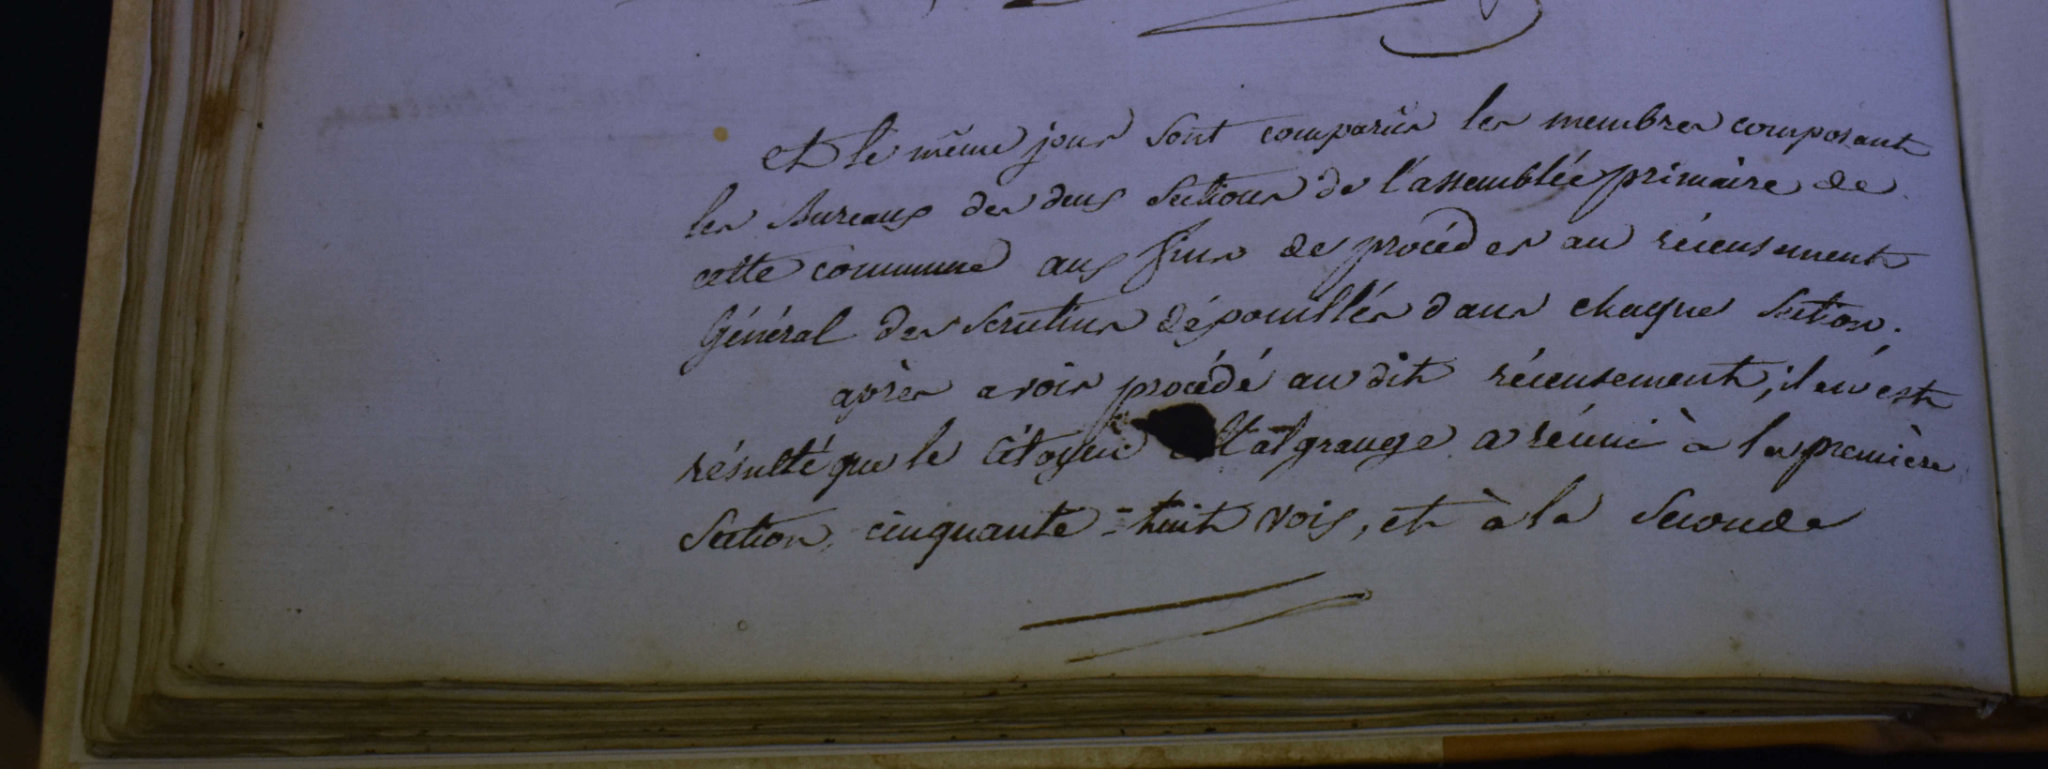 Et le même jour sont comparûs les membres composant
les Bureaux des deux Sections de l'assemblée primaire de
cette commune aux fins de procéder au récensement
Général des Scrutins dépouillés dans chaque Section.
après avoir procédé au dit récensement, il en est
résulté que le Citoyen a réuni à la première
Section, cinquante-huit voix, et à la Seconde